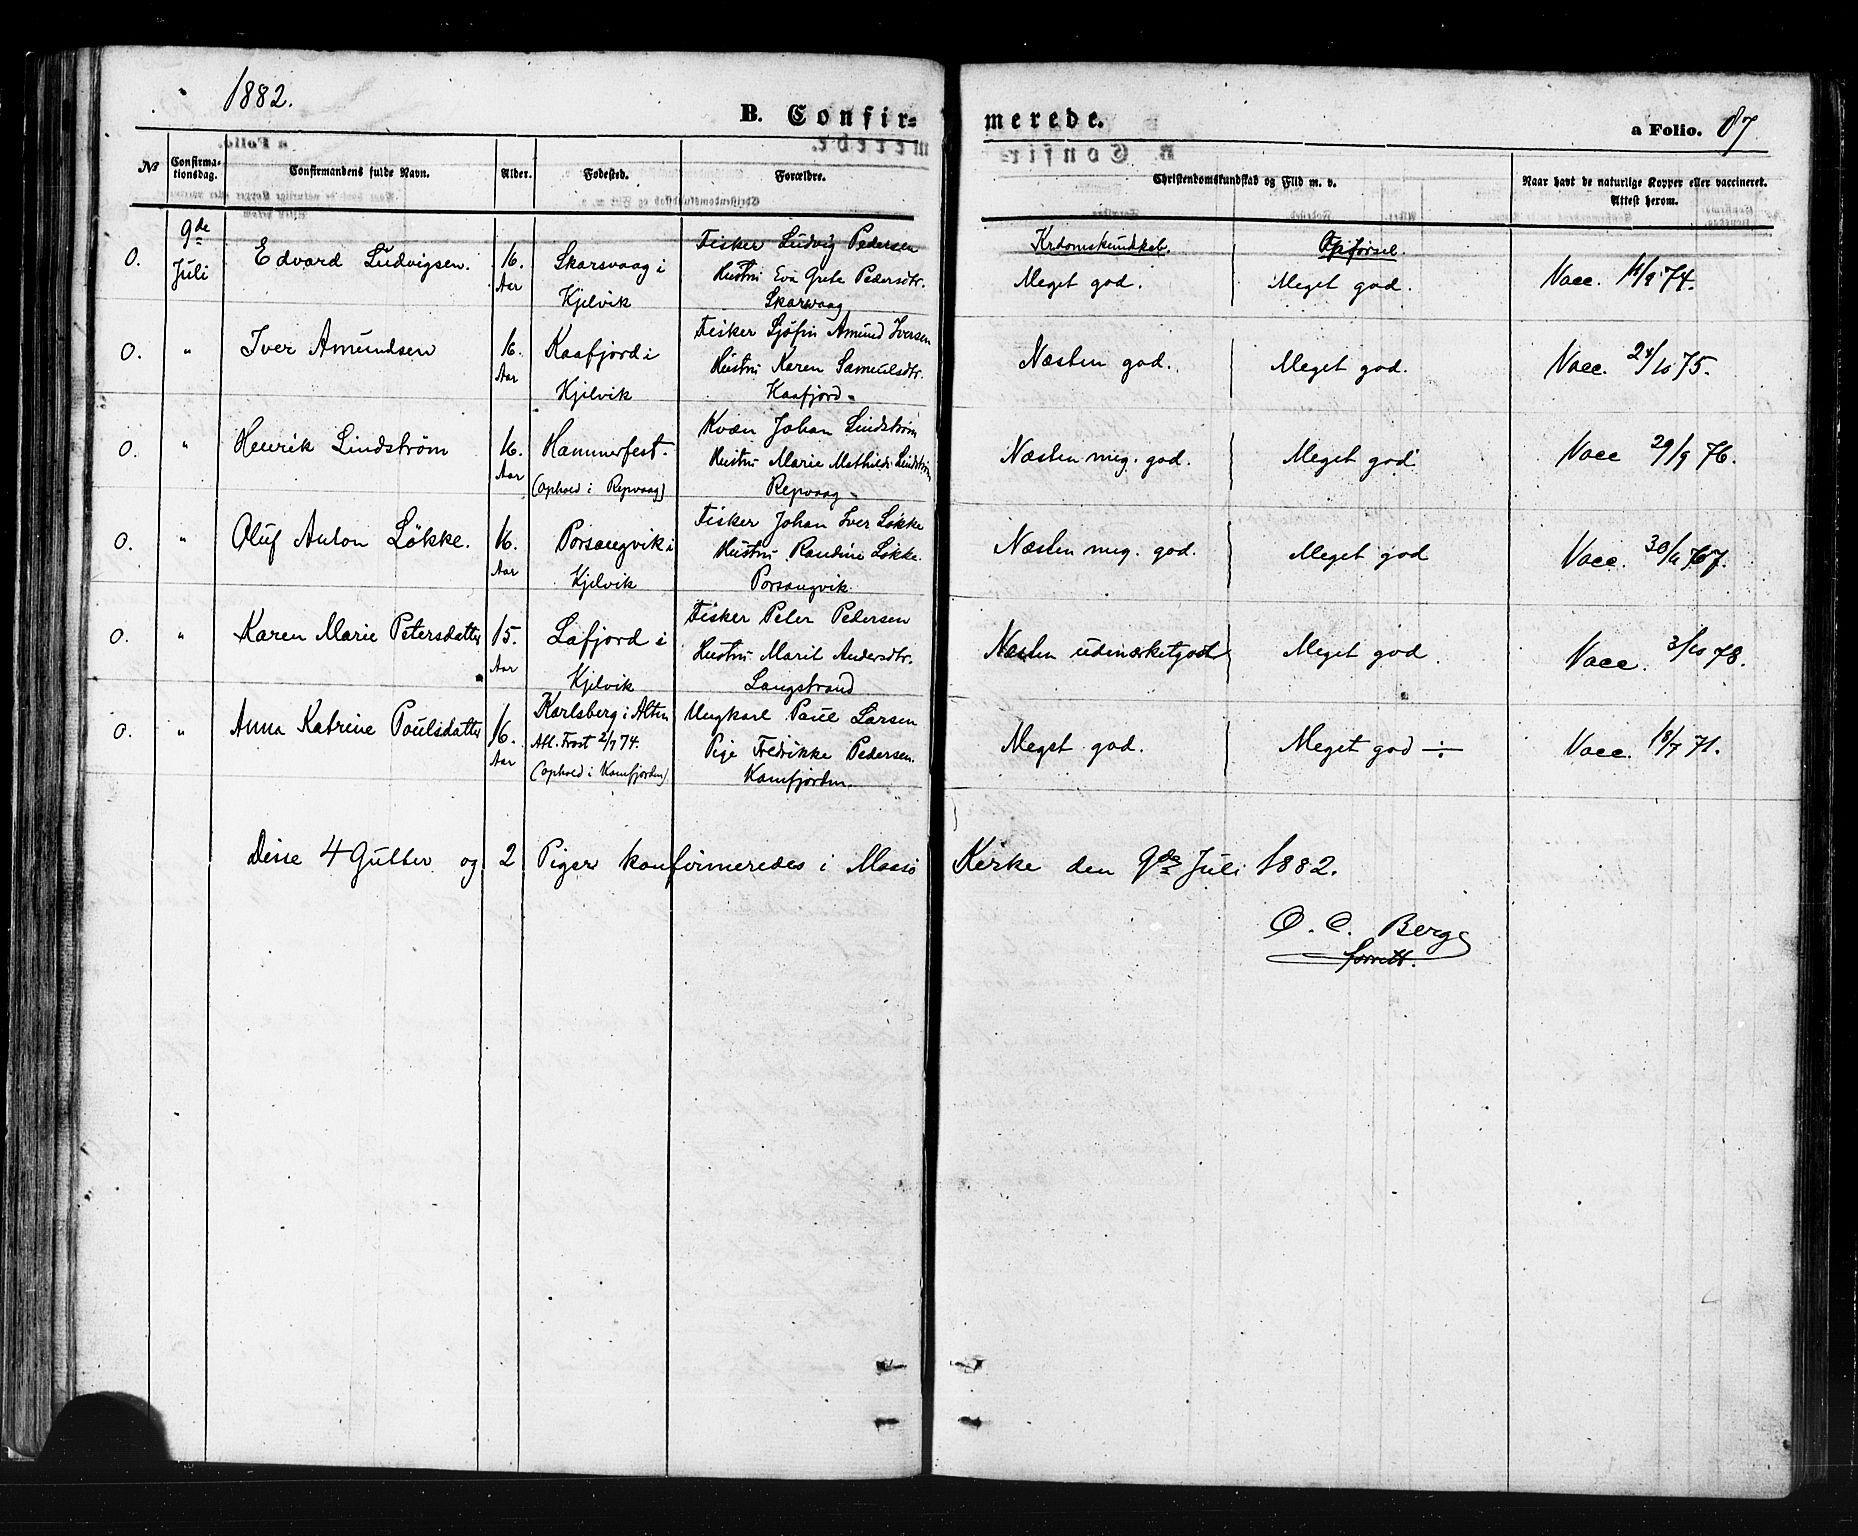 1882.
B. Confir= merede.
a Folio. 87
No Confirma-tionsdag. Confirmandens fulde Navn. Alder. Fødested. Forældre. Christendomskundskab og Flid m. v. Naar havt de naturlige Kopper eller vaccineret. Attest herom.
Krdomskundskab. Opførsel.
0. 9de Juli Edvard Ludvigsen. 16. Aar Skarsvaag i Kjelvik Fisker Ludvig Pedersen
Hustru Eva Grete Pedersdtr.
Skarsvaag
Meget god. Meget god. Vacc. 74.
0. " Iver Amundsen 16. Aar Kaafjord i Kjelvik Fisker Sjøfin Amund Iversen
Hustru Karen Samuelsdtr.
Kaafjord
Næsten god. Meget god. Vacc. 24/10 75.
0. " Henrik Lindstrøm 16. Aar Hammerfest. (Ophold i Repvaag) Kvæn Johan Lindstrøm
Hustru Marie Mathilde Lindstrøm
Repvaag
Næsten meg. god. Meget god Vacc 29/9 76.
0. " Oluf Anton Løkke. 16. Aar Porsangvik i Kjelvik Fisker Johan Iver Løkke
Hustru Randine Løkke.
Porsangvik.
Næsten meg. god. Meget god Vacc.
0. " Karen Marie Petersdatter 15. Aar Lafjord i Kjelvik Fisker Peter Pedersen
Hustru Marit Andersdtr.
Langstrand
Næsten udmærketgodt Meget god. Vacc. 3/10 78.
0. " Anna Katrine Poulsdatter 16. Aar Karlsberg i Alten
Att. Trost 2/7 74.
(ophold i Kamfjorden)
Ungkarl Paul Larsen
Pige Fredrikke Pedersen.
Kamfjorden.
Meget god. Meget god ÷ Vacc. 18/7 71.
Disse 4 Gutter og 2 Piger konfirmeredes i Maasø Kirke den 9de Juli 1882.
O. C. Berg